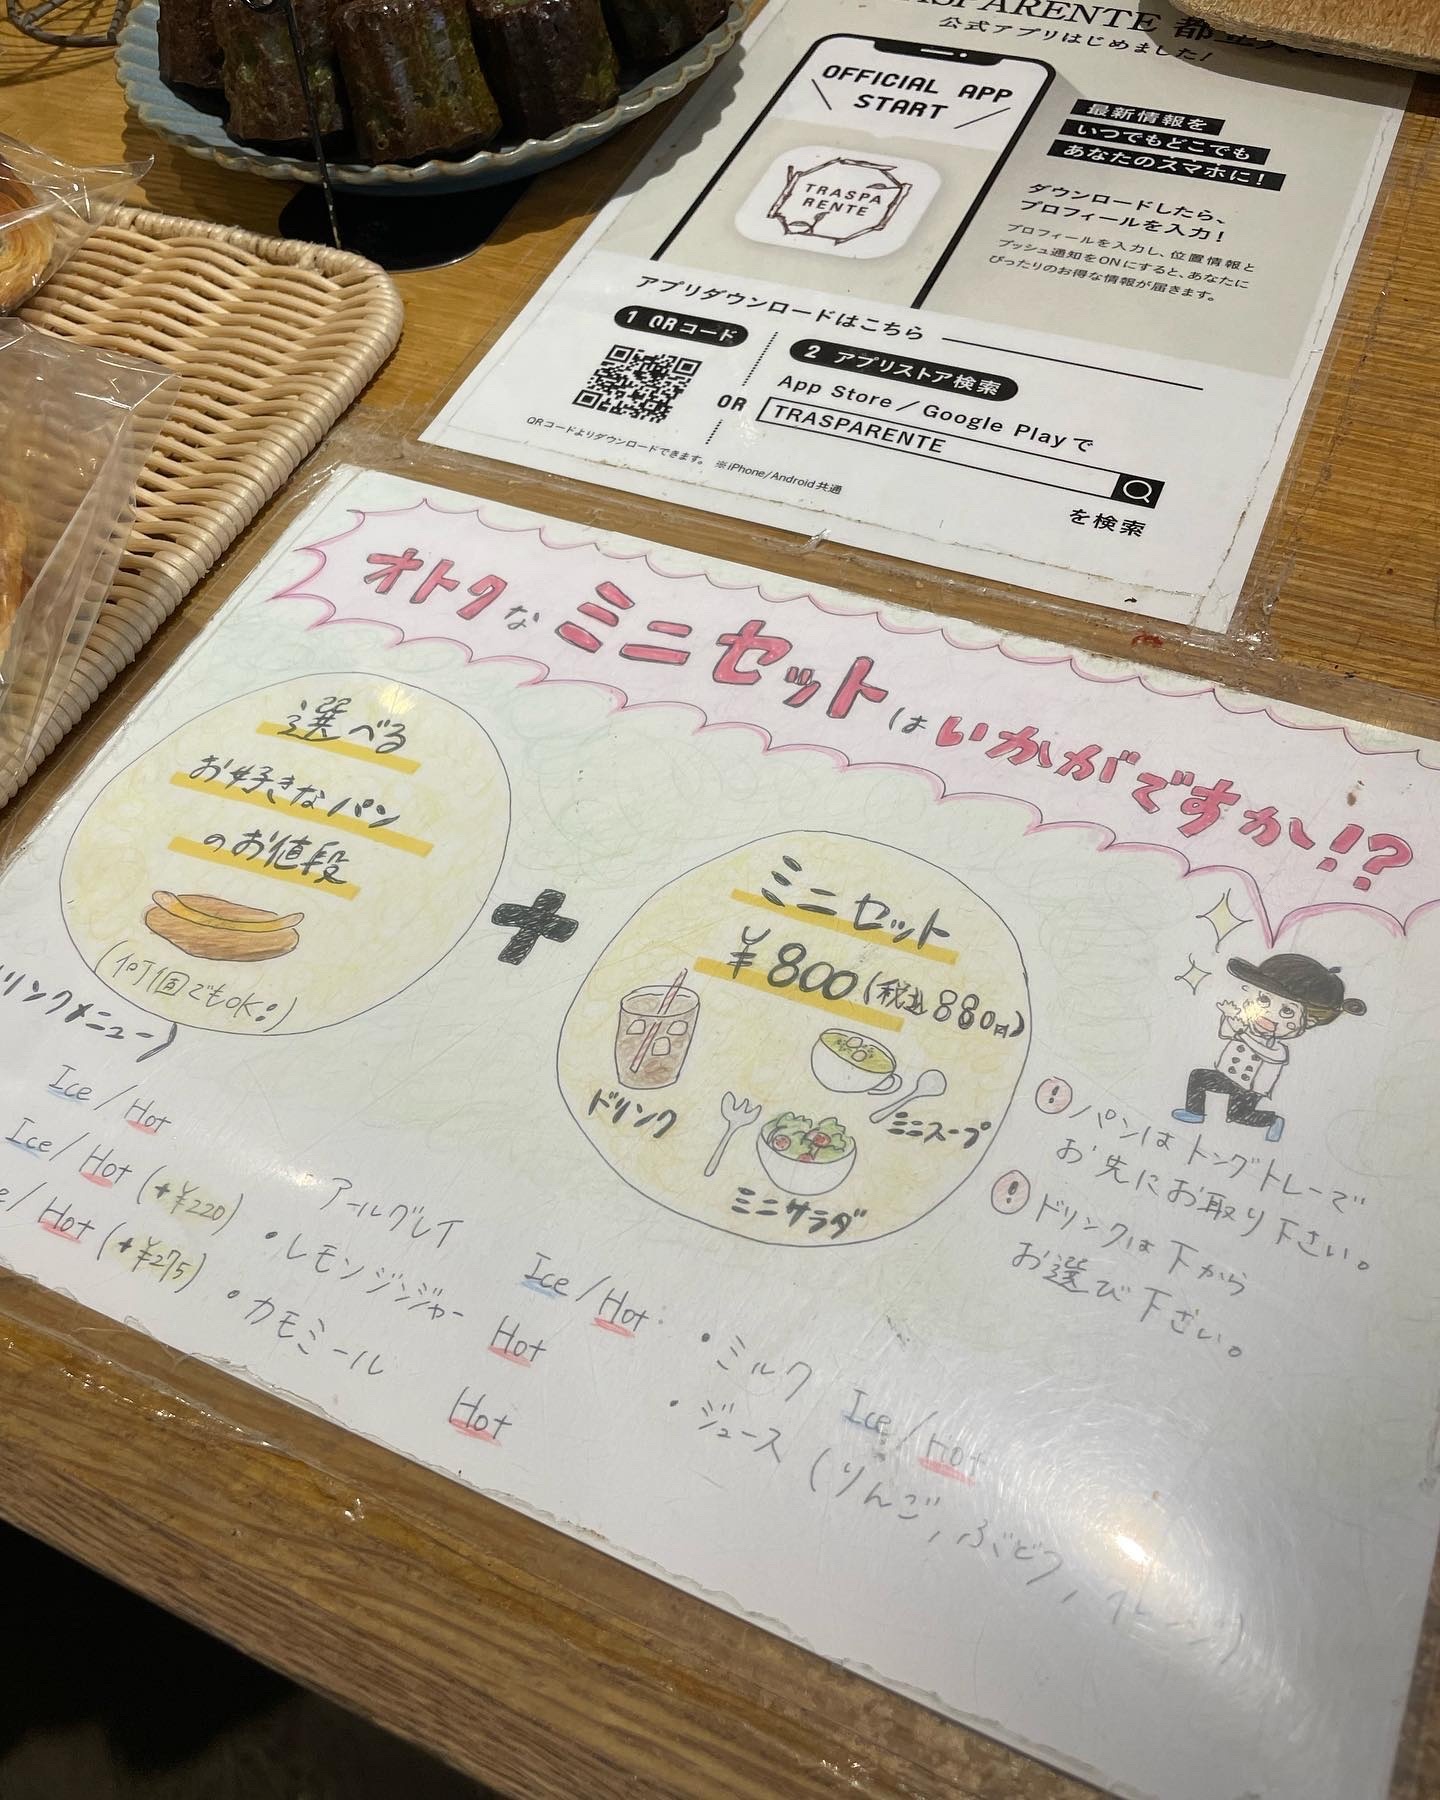 公式アプリはじめました!
OFFICIAL APP
START
TRASPA
RENTE
最新情報を
いつでもどこでも
あなたのスマホに!
ダウンロードしたら、
プロフィールを入力!
プロフィールを入力し、位置情報と
プッシュ通知をONにすると、あなたに
ぴったりのお得な情報が届きます。
アプリダウンロードはこちら
1 QRコード
QRコードよりダウンロードできます。 ※iPhone/Android共通
OR
2 アプリストア検索
App Store / Google Playで
TRASPARENTE
を検索
オトクなミニセットはいかがですか!?
選べる
お好きなパン
のお値段
(何個でもOK!)
+
ミニセット
¥800(税込880円)
ドリンク
ミニスープ
ミニサラダ
! パンはトングトレーで
お先にお取り下さい。
! ドリンクは下から
お選び下さい。
リンクメニュー)
Ice / Hot
Ice / Hot (+¥220)
/ Hot (+¥275)
・アールグレイ Ice / Hot
・レモンジンジャー Hot
・カモミール Hot
・ミルク Ice / Hot
・ジュース (りんご, ぶどう,